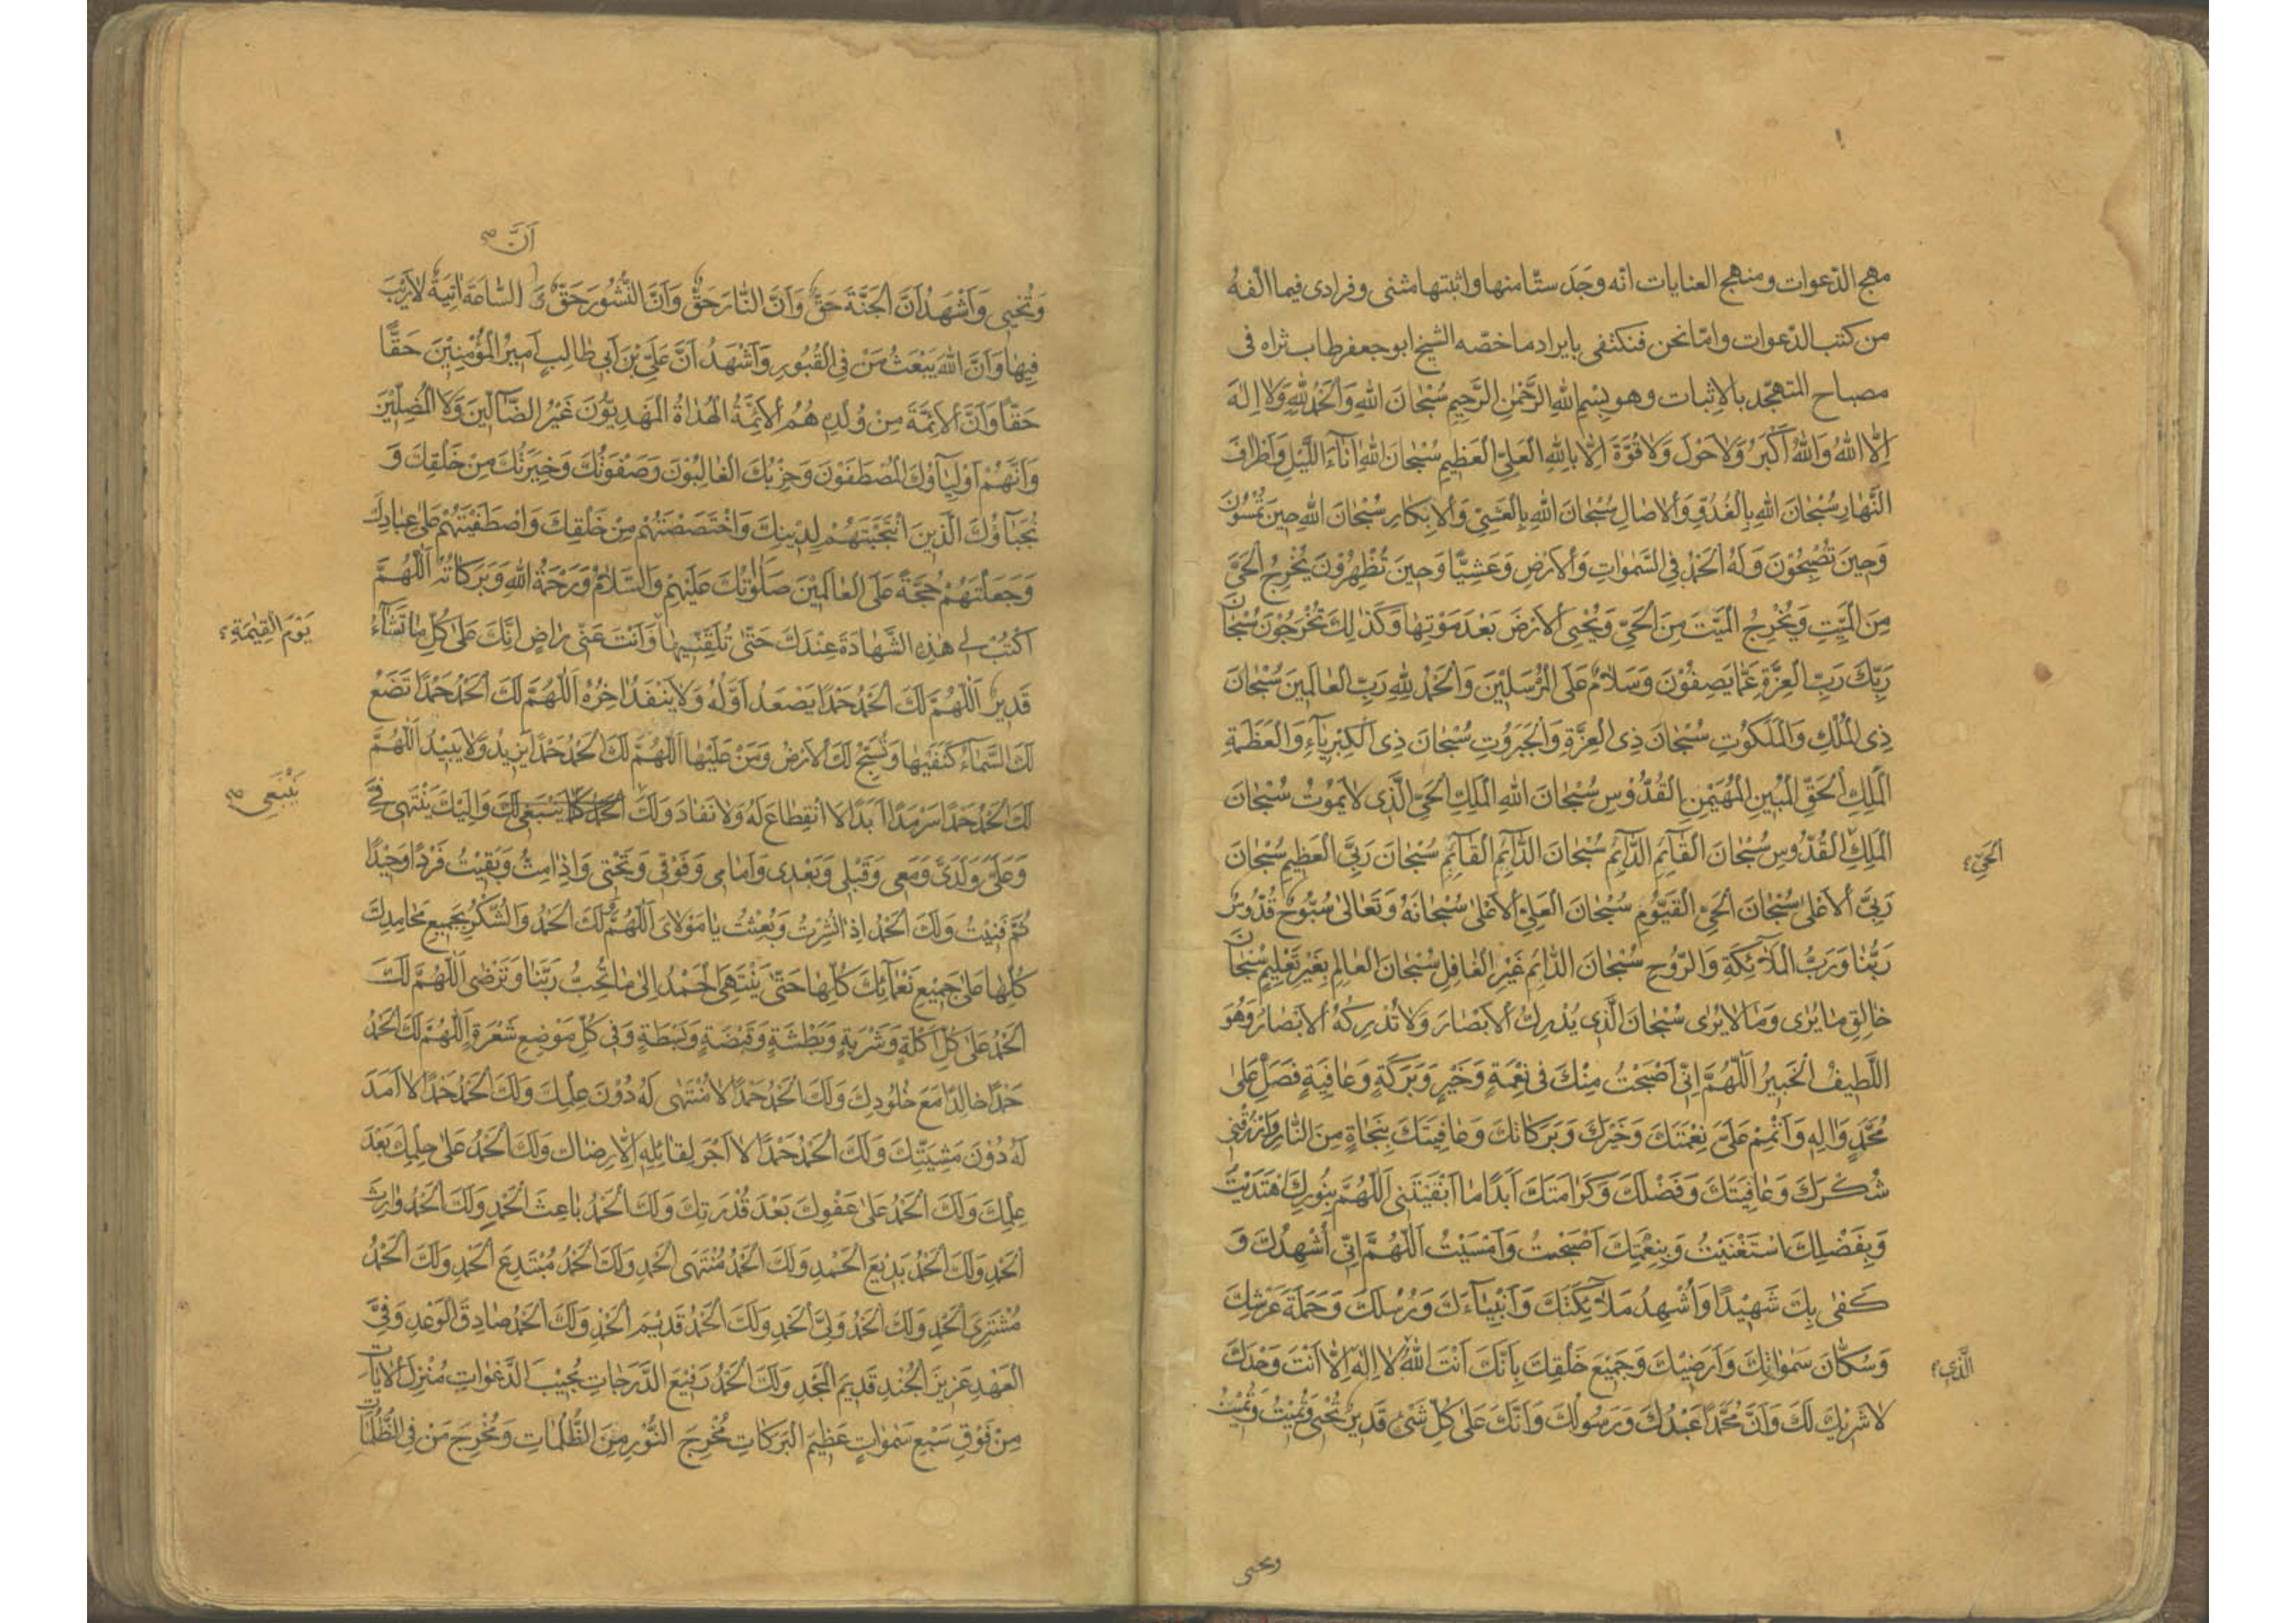 مهج الدّعوات ومنهج العنايات انّه وجَدَ ستّا منها واثبتها مثنى وفرادى فيما الّفهُ
من كتب الدّعوات وامّا نحن فنكتفى بايراد ما خصّه الشيخ ابو جعفر طاب ثراه فى
مصباح المتهجّد بالاِثبات وهو بِسْمِ اللهِ الرَّحْمٰنِ الرَّحِيمِ سُبْحَانَ اللهِ وَالْحَمْدُ لِلّٰهِ وَلَا اِلٰهَ
اِلَّا اللهُ وَاللهُ اَكْبَرُ وَلَا حَوْلَ وَلَا قُوَّةَ اِلَّا بِاللهِ الْعَلِيِّ الْعَظِيمِ سُبْحَانَ اللهِ اٰنَاءَ اللَّيْلِ وَاَطْرَافَ
النَّهَارِ سُبْحَانَ اللهِ بِالْغُدُوِّ وَالْاٰصَالِ سُبْحَانَ اللهِ بِالْعَشِيِّ وَالْاِبْكَارِ سُبْحَانَ اللهِ حِينَ تُمْسُونَ
وَحِينَ تُصْبِحُونَ وَلَهُ الْحَمْدُ فِى السَّمٰوَاتِ وَالْاَرْضِ وَعَشِيًّا وَحِينَ تُظْهِرُونَ يُخْرِجُ الْحَيَّ
مِنَ الْمَيِّتِ وَيُخْرِجُ الْمَيِّتَ مِنَ الْحَيِّ وَيُحْيِى الْاَرْضَ بَعْدَ مَوْتِهَا وَكَذٰلِكَ تُخْرَجُونَ سُبْحَانَ
رَبِّكَ رَبِّ الْعِزَّةِ عَمَّا يَصِفُونَ وَسَلَامٌ عَلَى الْمُرْسَلِينَ وَالْحَمْدُ لِلّٰهِ رَبِّ الْعَالَمِينَ سُبْحَانَ
ذِى الْمُلْكِ وَالْمَلَكُوتِ سُبْحَانَ ذِى الْعِزَّةِ وَالْجَبَرُوتِ سُبْحَانَ ذِى الْكِبْرِيَآءِ وَالْعَظَمَةِ
الْمَلِكِ الْحَقِّ الْمُبِينِ الْمُهَيْمِنِ الْقُدُّوسِ سُبْحَانَ اللهِ الْمَلِكِ الْحَيِّ الَّذِى لَا يَمُوتُ سُبْحَانَ
الْمَلِكِ الْقُدُّوسِ سُبْحَانَ الْقَآئِمِ الدَّآئِمِ سُبْحَانَ الدَّآئِمِ الْقَآئِمِ سُبْحَانَ رَبِّيَ الْعَظِيمِ سُبْحَانَ
الْحَيِّ
رَبِّيَ الْاَعْلٰى سُبْحَانَ الْحَيِّ الْقَيُّومِ سُبْحَانَ الْعَلِيِّ الْاَعْلٰى سُبْحَانَهُ وَتَعَالٰى سُبُّوحٌ قُدُّوسٌ
رَبُّنَا وَرَبُّ الْمَلَآئِكَةِ وَالرُّوحِ سُبْحَانَ الدَّآئِمِ غَيْرِ الْغَافِلِ سُبْحَانَ الْعَالِمِ بِغَيْرِ تَعْلِيمٍ سُبْحَانَ
خَالِقِ مَا يُرٰى وَمَا لَا يُرٰى سُبْحَانَ الَّذِى يُدْرِكُ الْاَبْصَارَ وَلَا تُدْرِكُهُ الْاَبْصَارُ وَهُوَ
اللَّطِيفُ الْخَبِيرُ اَللّٰهُمَّ اِنِّى اَصْبَحْتُ مِنْكَ فِى نِعْمَةٍ وَخَيْرٍ وَبَرَكَةٍ وَعَافِيَةٍ فَصَلِّ عَلٰى
مُحَمَّدٍ وَاٰلِهِ وَاَتْمِمْ عَلَيَّ نِعْمَتَكَ وَخَيْرَكَ وَبَرَكَاتِكَ وَعَافِيَتَكَ بِنَجَاةٍ مِنَ النَّارِ وَارْزُقْنِى
شُكْرَكَ وَعَافِيَتَكَ وَفَضْلَكَ وَكَرَامَتَكَ اَبَدًا مَا اَبْقَيْتَنِى اَللّٰهُمَّ بِنُورِكَ اهْتَدَيْتُ
وَبِفَضْلِكَ اسْتَغْنَيْتُ وَبِنِعْمَتِكَ اَصْبَحْتُ وَاَمْسَيْتُ اَللّٰهُمَّ اِنِّى اُشْهِدُكَ وَ
كَفٰى بِكَ شَهِيدًا وَاُشْهِدُ مَلَآئِكَتَكَ وَاَنْبِيَآءَكَ وَرُسُلَكَ وَحَمَلَةَ عَرْشِكَ
وَسُكَّانَ سَمٰوَاتِكَ وَاَرَضِيكَ وَجَمِيعَ خَلْقِكَ بِاَنَّكَ اَنْتَ اللهُ لَا اِلٰهَ اِلَّا اَنْتَ وَحْدَكَ
الَّذِى
لَا شَرِيكَ لَكَ وَاَنَّ مُحَمَّدًا عَبْدُكَ وَرَسُولُكَ وَاَنَّكَ عَلٰى كُلِّ شَىْءٍ قَدِيرٌ تُحْيِى وَتُمِيتُ وَتُمِيتُ
وتحيى
اَنَّ
وَتُحْيِى وَاَشْهَدُ اَنَّ الْجَنَّةَ حَقٌّ وَاَنَّ النَّارَ حَقٌّ وَاَنَّ النُّشُورَ حَقٌّ وَ السَّاعَةَ اٰتِيَةٌ لَا رَيْبَ
فِيهَا وَاَنَّ اللهَ يَبْعَثُ مَنْ فِى الْقُبُورِ وَاَشْهَدُ اَنَّ عَلِيَّ بْنَ اَبِى طَالِبٍ اَمِيرُ الْمُؤْمِنِينَ حَقًّا
حَقًّا وَاَنَّ الْاَئِمَّةَ مِنْ وُلْدِهِ هُمُ الْاَئِمَّةُ الْهُدَاةُ الْمَهْدِيُّونَ غَيْرُ الضَّآلِّينَ وَلَا الْمُضِلِّينَ
وَاَنَّهُمْ اَوْلِيَآؤُكَ الْمُصْطَفَوْنَ وَحِزْبُكَ الْغَالِبُونَ وَصَفْوَتُكَ وَخِيَرَتُكَ مِنْ خَلْقِكَ وَ
نُجَبَآؤُكَ الَّذِينَ انْتَجَبْتَهُمْ لِدِينِكَ وَاخْتَصَصْتَهُمْ مِنْ خَلْقِكَ وَاصْطَفَيْتَهُمْ عَلٰى عِبَادِكَ
وَجَعَلْتَهُمْ حُجَّةً عَلَى الْعَالَمِينَ صَلَوَاتُكَ عَلَيْهِمْ وَالسَّلَامُ وَرَحْمَةُ اللهِ وَبَرَكَاتُهُ اَللّٰهُمَّ
اكْتُبْ لِى هٰذِهِ الشَّهَادَةَ عِنْدَكَ حَتّٰى تُلَقِّنَنِيهَا وَاَنْتَ عَنِّى رَاضٍ اِنَّكَ عَلٰى كُلِّ مَا تَشَآءُ
يَوْمَ الْقِيٰمَةِ
قَدِيرٌ اَللّٰهُمَّ لَكَ الْحَمْدُ حَمْدًا يَصْعَدُ اَوَّلُهُ وَلَا يَنْفَدُ اٰخِرُهُ اَللّٰهُمَّ لَكَ الْحَمْدُ حَمْدًا تَضَعُ
لَكَ السَّمَآءُ كَنَفَيْهَا وَتُسَبِّحُ لَكَ الْاَرْضُ وَمَنْ عَلَيْهَا اَللّٰهُمَّ لَكَ الْحَمْدُ حَمْدًا يَزِيدُ وَلَا يَبِيدُ اَللّٰهُمَّ
لَكَ الْحَمْدُ حَمْدًا سَرْمَدًا اَبَدًا لَا انْقِطَاعَ لَهُ وَلَا نَفَادَ وَلَكَ الْحَمْدُ كَمَا يَنْبَغِى لَكَ وَاِلَيْكَ يَنْتَهِى فِىَّ
يَنْبَغِى
وَعَلَيَّ وَلَدَيَّ وَمَعِى وَقَبْلِى وَبَعْدِى وَاَمَامِى وَفَوْقِى وَتَحْتِى وَاِذَا مِتُّ وَبَقِيتُ فَرْدًا وَحِيدًا
ثُمَّ فَنِيتُ وَلَكَ الْحَمْدُ اِذَا نُشِرْتُ وَبُعِثْتُ يَا مَوْلَاىَ اَللّٰهُمَّ وَلَكَ الْحَمْدُ وَالشُّكْرُ بِجَمِيعِ مَحَامِدِكَ
كُلِّهَا عَلٰى جَمِيعِ نَعْمَآئِكَ كُلِّهَا حَتّٰى يَنْتَهِىَ الْحَمْدُ اِلٰى مَا تُحِبُّ رَبَّنَا وَتَرْضٰى اَللّٰهُمَّ لَكَ
الْحَمْدُ عَلٰى كُلِّ اَكْلَةٍ وَشَرْبَةٍ وَبَطْشَةٍ وَقَبْضَةٍ وَبَسْطَةٍ وَفِى كُلِّ مَوْضِعِ شَعْرَةٍ اَللّٰهُمَّ لَكَ الْحَمْدُ
حَمْدًا خَالِدًا مَعَ خُلُودِكَ وَلَكَ الْحَمْدُ حَمْدًا لَا مُنْتَهٰى لَهُ دُونَ عِلْمِكَ وَلَكَ الْحَمْدُ حَمْدًا لَا اَمَدَ
لَهُ دُونَ مَشِيَّتِكَ وَلَكَ الْحَمْدُ حَمْدًا لَا اَجْرَ لِقَائِلِهِ اِلَّا رِضَاكَ وَلَكَ الْحَمْدُ عَلٰى حِلْمِكَ بَعْدَ
عِلْمِكَ وَلَكَ الْحَمْدُ عَلٰى عَفْوِكَ بَعْدَ قُدْرَتِكَ وَلَكَ الْحَمْدُ بَاعِثَ الْحَمْدِ وَلَكَ الْحَمْدُ وَارِثَ
الْحَمْدِ وَلَكَ الْحَمْدُ بَدِيعَ الْحَمْدِ وَلَكَ الْحَمْدُ مُنْتَهَى الْحَمْدِ وَلَكَ الْحَمْدُ مُبْتَدِعَ الْحَمْدِ وَلَكَ الْحَمْدُ
مُشْتَرِىَ الْحَمْدِ وَلَكَ الْحَمْدُ وَلِيَّ الْحَمْدِ وَلَكَ الْحَمْدُ قَدِيمَ الْحَمْدِ وَلَكَ الْحَمْدُ صَادِقَ الْوَعْدِ وَفِيَّ
الْعَهْدِ عَزِيزَ الْجُنْدِ قَدِيمَ الْمَجْدِ وَلَكَ الْحَمْدُ رَفِيعَ الدَّرَجَاتِ مُجِيبَ الدَّعَوَاتِ مُنْزِلَ الْاٰيَاتِ
مِنْ فَوْقِ سَبْعِ سَمٰوَاتٍ عَظِيمَ الْبَرَكَاتِ مُخْرِجَ النُّورِ مِنَ الظُّلُمَاتِ وَمُخْرِجَ مَنْ فِى الظُّلُمَاتِ